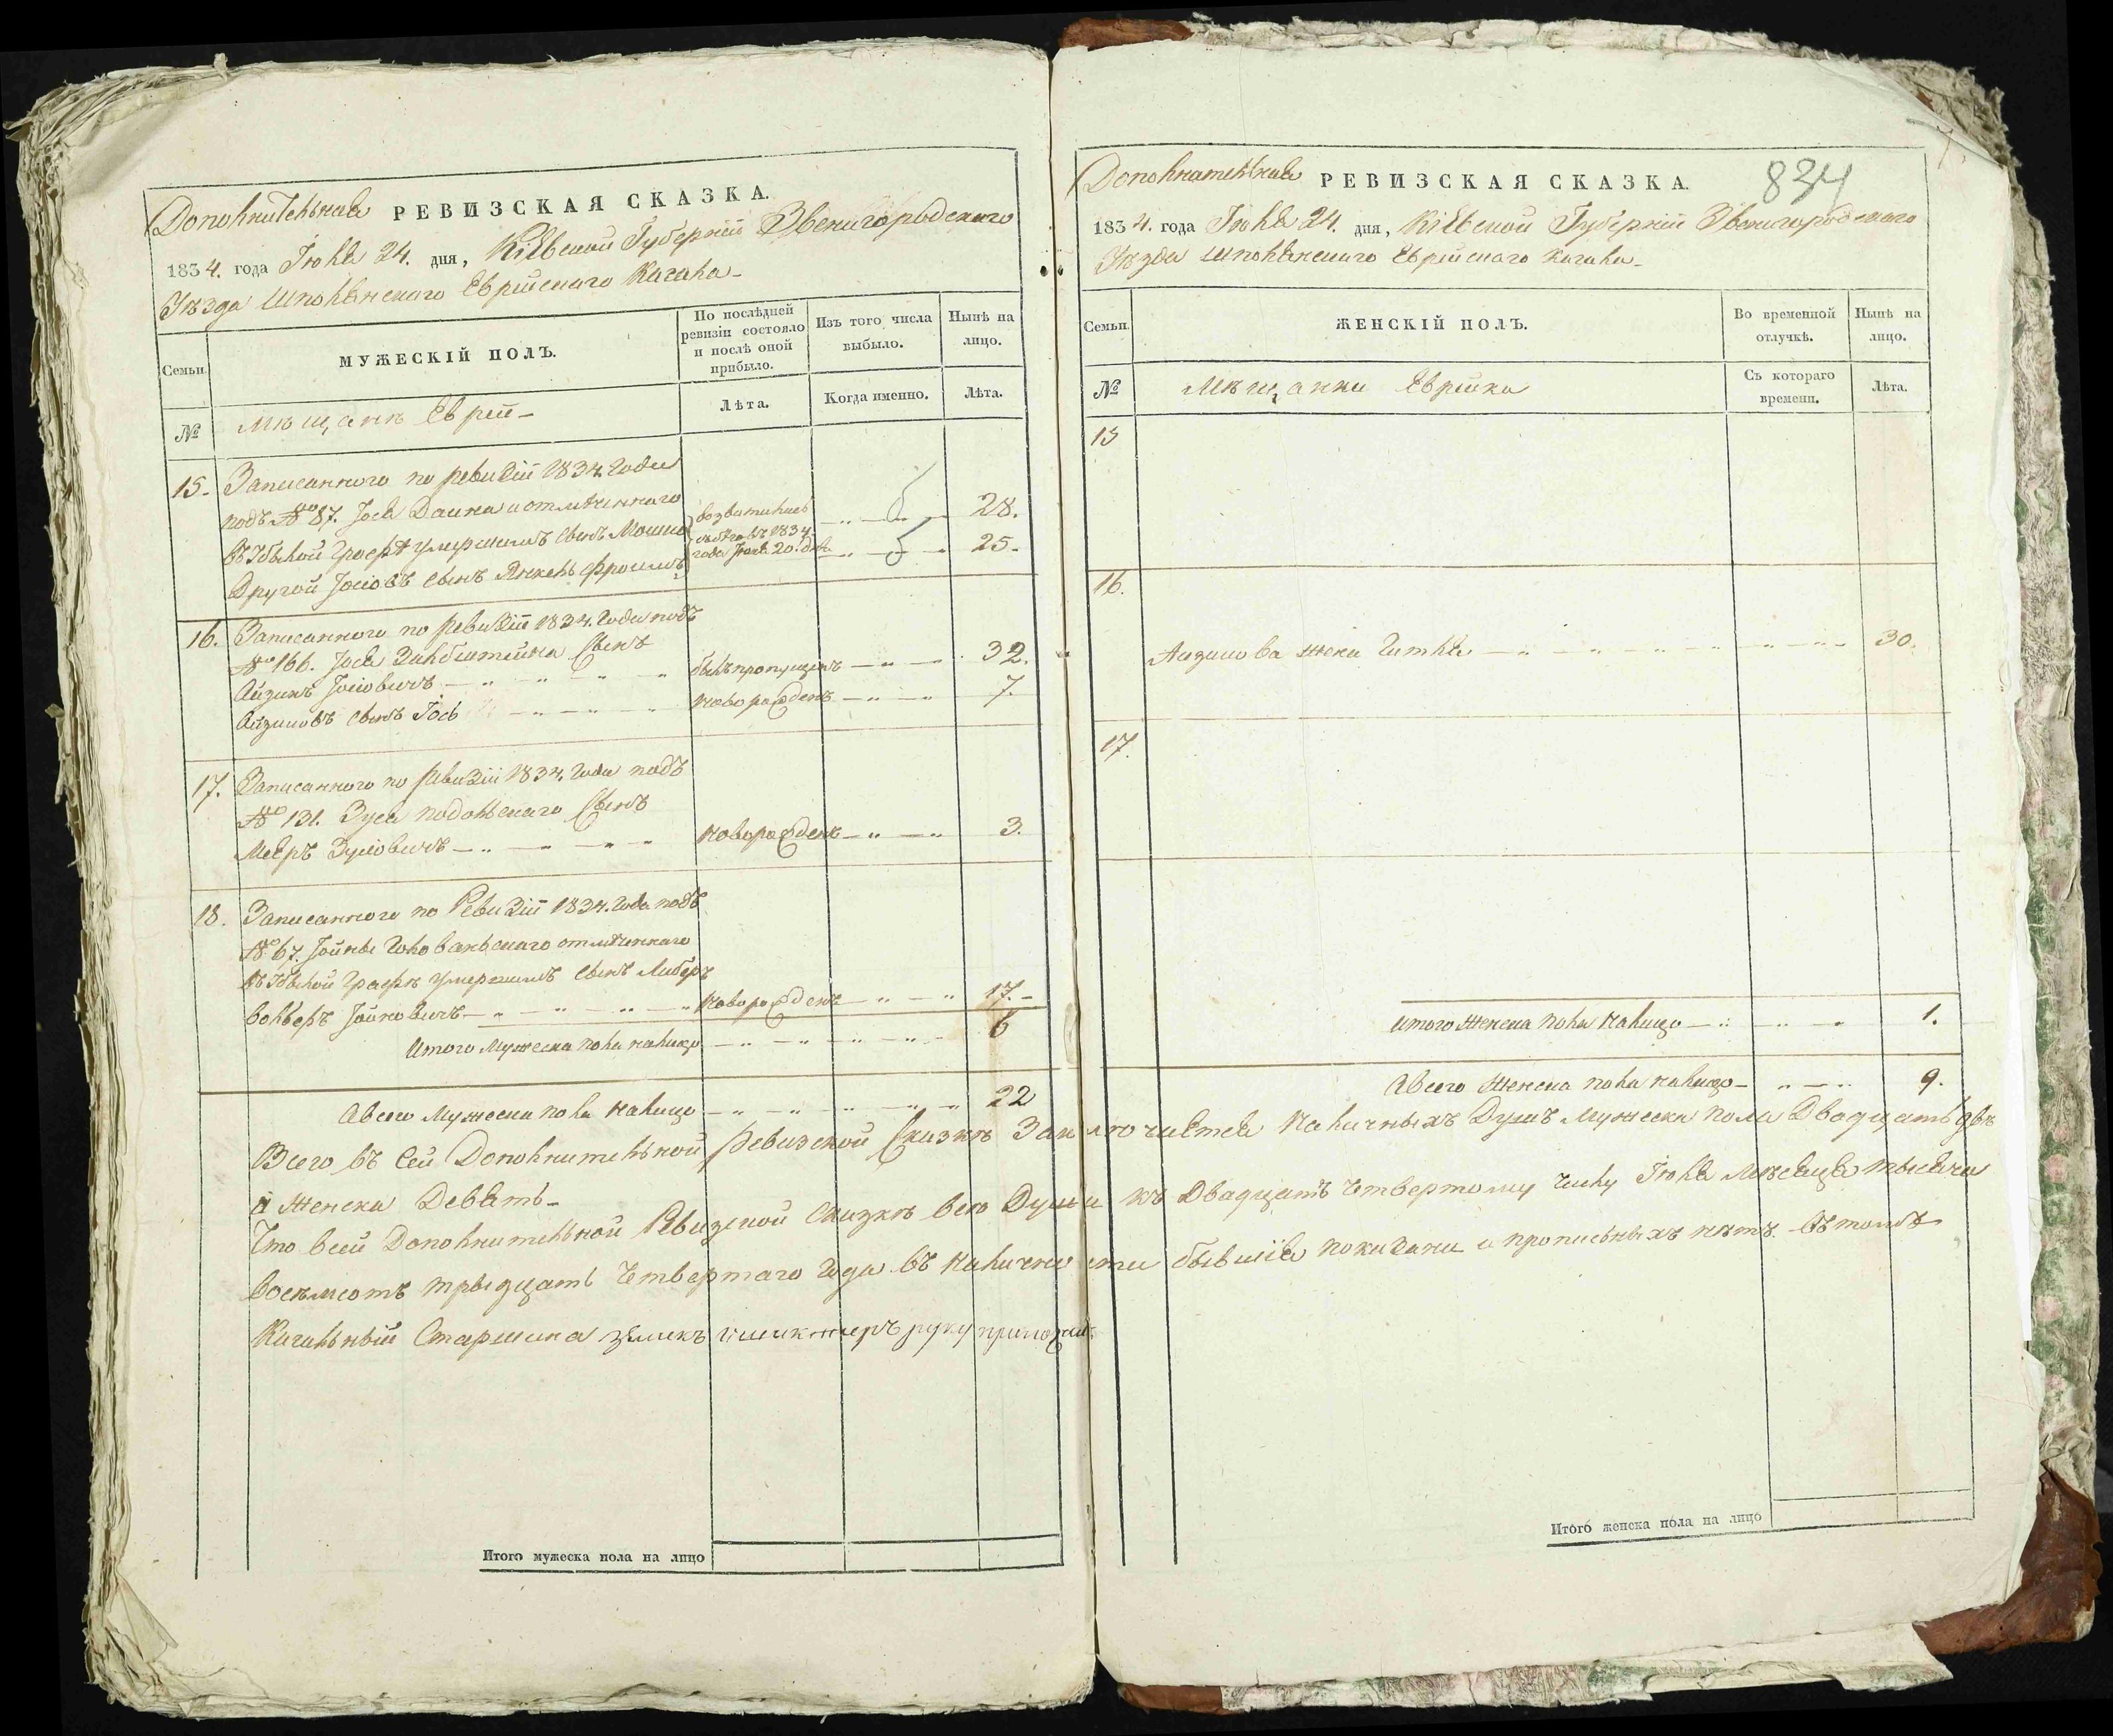 Дополнительная РЕВИЗСКАЯ СКАЗКА.
1834. года Іюля 24. дня, Кіевской Губерніи Звенигородскаго
Уѣзда Шполянскаго Еврейскаго Кагала
Семьи.
МУЖЕСКІЙ ПОЛЪ.
По послѣдней ревизіи состояло и послѣ оной прибыло.
Изъ того числа выбыло.
Нынѣ на лицо.
№
Мѣщанѣ Евреи
Лѣта.
Когда именно.
Лѣта.
15. Записанного по ревизіи 1834. Года
подъ № 87. Іося Дашка и отмѣченного
въ убылой графѣ умершимъ сынъ Мошко возвратились 28.
Другой Іосіовъ сынъ Янкель Фроимъ съ бѣговъ 1834 года Іюля 20. дня 25.
16. Записанного по ревизіи 1834. Года подъ
№ 166. Іося Зильбштейна Сынъ
Айзикъ Іосіовичъ былъ пропущенъ 32.
Айзиковъ сынъ Іось новорожденъ 7.
17. Записанного по ревизіи 1834. Года подъ
№ 131. Зуся Подольскаго Сынъ
Мееръ Зусіовичъ новорожденъ 3.
18. Записанного по Ревизіи 1834. Года подъ
№ 67. Іойны Голованьскаго отмѣченнаго
въ убылой графѣ умершимъ сынъ Либеръ
Вольфъ Іойновичъ новорожденъ 17.
Итого мужеска пола налицо 6
А всего мужеска пола налицо 22
Дополнительная РЕВИЗСКАЯ СКАЗКА. 834
1834. года Іюля 24. дня, Кіевской Губерніи Звенигородскаго
Уѣзда Шполянскаго Еврейскаго Кагала
Семьи.
ЖЕНСКІЙ ПОЛЪ.
Во временной отлучкѣ.
Нынѣ на лицо.
№
Мѣщанки Еврейки
Съ котораго времени.
Лѣта.
15
16.
Айзикова жена Гитля 30.
17.
Итого женска пола налицо 1.
А всего женска пола налицо 9.
Всего въ сей Дополнительной Ревизской Сказкѣ Заключается наличныхъ Душъ мужеска пола Двадцать двѣ
а женска Девять
Что в сей Дополнительной Ревизской Сказкѣ всѣ Души къ Двадцать Четвертому числу Іюля Мѣсяца тысяча
восемсотъ тридцать Четвертаго Года въ наличности бывшія показаны и прописныхъ нѣтъ. Въ томъ
Кагальный Старшина руку приложилъ
Итого мужеска пола на лицо
Итого женска пола на лицо